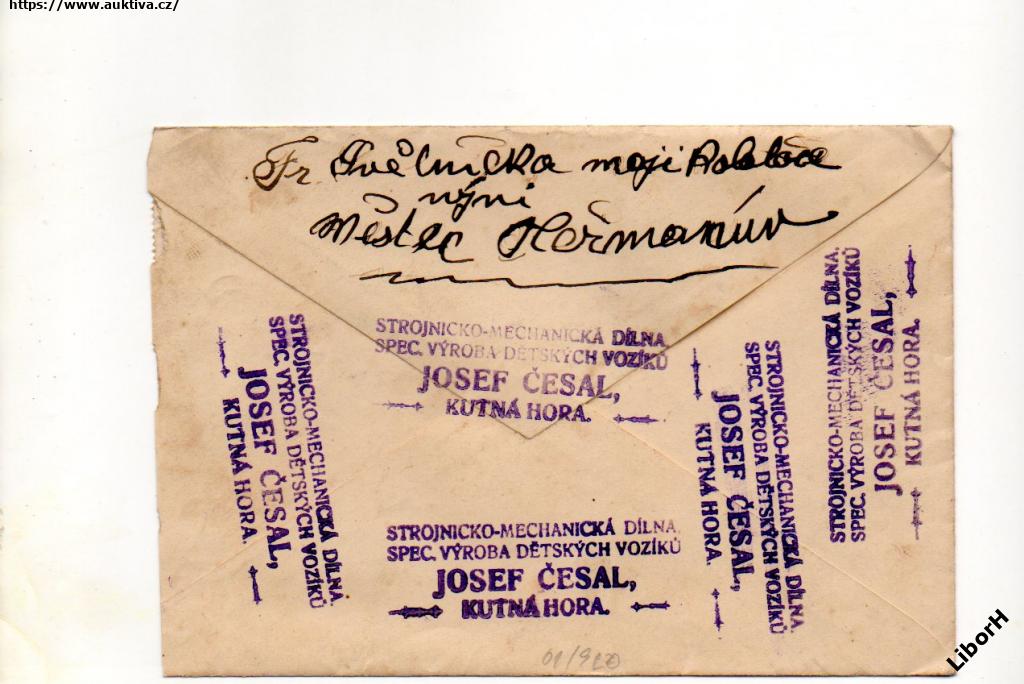 https://www.auktiva.cz/
Fr. Světnička
nyní
Městec Heřmanův
STROJNICKO-MECHANICKÁ DÍLNA.
SPEC. VÝROBA DĚTSKÝCH VOZÍKŮ
JOSEF ČESAL,
KUTNÁ HORA.
STROJNICKO-MECHANICKÁ DÍLNA.
SPEC. VÝROBA DĚTSKÝCH VOZÍKŮ
JOSEF ČESAL,
KUTNÁ HORA.
STROJNICKO-MECHANICKÁ DÍLNA.
SPEC. VÝROBA DĚTSKÝCH VOZÍKŮ
JOSEF ČESAL,
KUTNÁ HORA.
STROJNICKO-MECHANICKÁ DÍLNA.
SPEC. VÝROBA DĚTSKÝCH VOZÍKŮ
JOSEF ČESAL,
KUTNÁ HORA.
STROJNICKO-MECHANICKÁ DÍLNA.
SPEC. VÝROBA DĚTSKÝCH VOZÍKŮ
JOSEF ČESAL,
KUTNÁ HORA.
LiborH